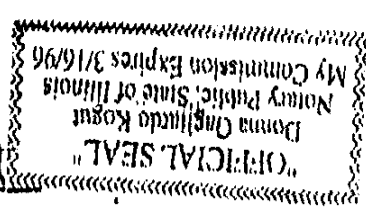 "OFFICIAL SEAL"
Donna Gagliardo Kogut
Notary Public, State of Illinois
My Commission Expires 3/16/96